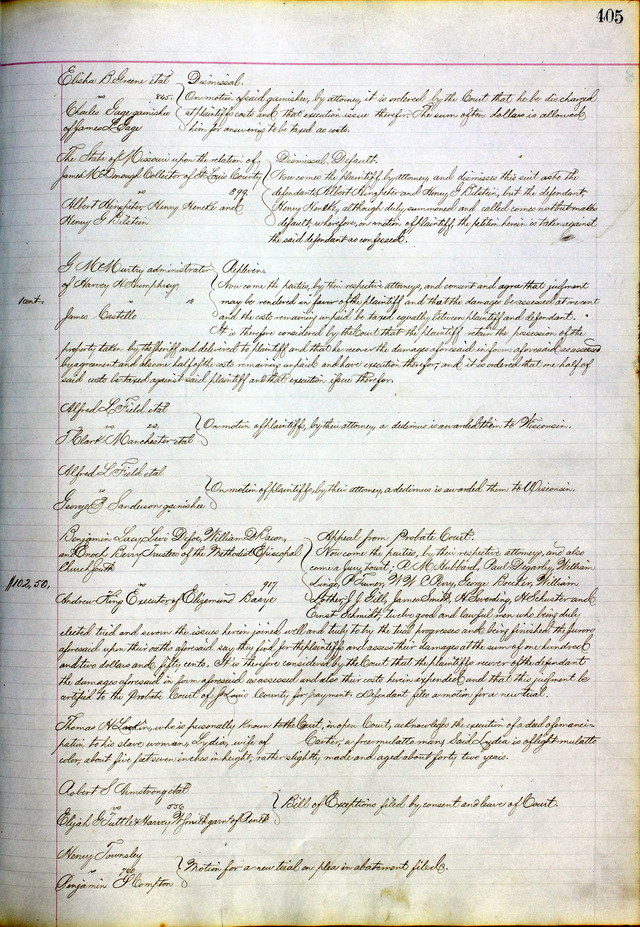 405
Elisha B Greene etal
vs 845.
Charles Gage garnishee
of James L Gage
Dismissal.
On motion of said garnishee, by attorney, it is ordered by the Court that he be discharged
at plaintiffs costs and that execution issue therefor. The sum of ten dollars is allowed
him for answering to be taxed as costs.
The State of Missouri upon the relation of
James McDonough Collector of St Louis County
vs 899.
Albert Hengster Henry Hencke and
Henry G Bilstein
Dismissal. Default.
Now comes the plaintiff by attorney, and dismisses this suit as to the
defendants Albert and Henry G Bilstein, but the defendant
Henry although duly summoned and called comes not but makes
default; wherefore, on motion of plaintiff, the petition herein is taken against
the said defendant as confessed.
1 cent.
G McMurtry administrator
of Harvey H Humphrey
vs
James Castello
Replevin.
Now come the parties, by their respective attorneys, and consent and agree that judgment
may be rendered in favor of the plaintiff and that the damages be assessed at one cent
and the costs remaining unpaid be taxed equally between plaintiff and defendant.
It is therefore considered by the Court that the plaintiff retain the possession of the
property taken by the sheriff and delivered to plaintiff and that he recover the damages aforesaid in form aforesaid as assessed
by agreement and also one half of the costs remaining unpaid and have execution therefor, and it is ordered that one half of
said costs be taxed against said plaintiff and that execution issue therefor.
Alfred L Field etal
vs
T Clark Manchester etal
On motion of plaintiffs, by their attorney, a dedimus is awarded them to Wisconsin.
Alfred L Field etal
vs
George B Sanderson garnishee
On motion of plaintiffs, by their attorney, a dedimus is awarded them to Wisconsin.
$102,50,
Benjamin Lacy, Levi Defoe, William D Bacon,
and Enoch Berry Trustees of the Methodist Episcopal
Church South
vs 917
Andrew King Executor of Elizemond Basye
Appeal from Probate Court.
Now come the parties, by their respective attorneys, and also
comes a jury, towit, R M Hubbard, Paul Degarly, William
Lingo, P Turner, W W C Perry, George Bocklin, William
J J Gill, James Smith, H Grending, H Schuster and
Ernst Schmidt, twelve good and lawful men who being duly
elected tried and sworn the issues herein joined well and truly to try the trial progresses and being finished the jurors
aforesaid upon their oaths aforesaid say they find for the plaintiffs and assess their damages at the sum of one hundred
and two dollars and fifty cents. It is therefore considered by the Court that the plaintiffs recover of the defendant
the damages aforesaid in form aforesaid as assessed and also their costs herein expended and that this judgment be
certified to the Probate Court of St Louis County for payment. Defendant files a motion for a new trial.
Thomas H Larkin, who is personally known to the Court, in open Court, acknowledges the execution of a deed of emanci-
pation to his slave woman, Lydia, wife of Carter, a free mulatto man, Said Lydia is of light mulatto
color, about five feet seven inches in height, rather slightly made and aged about forty two years.
Robert S Armstrong etal
vs 556
Elijah G Tuttle & Harvey W Smith garn of
Bill of Exceptions filed by consent and leave of Court.
Henry Townsley
vs
Benjamin F Compton
Motion for a new trial on plea in abatement filed.